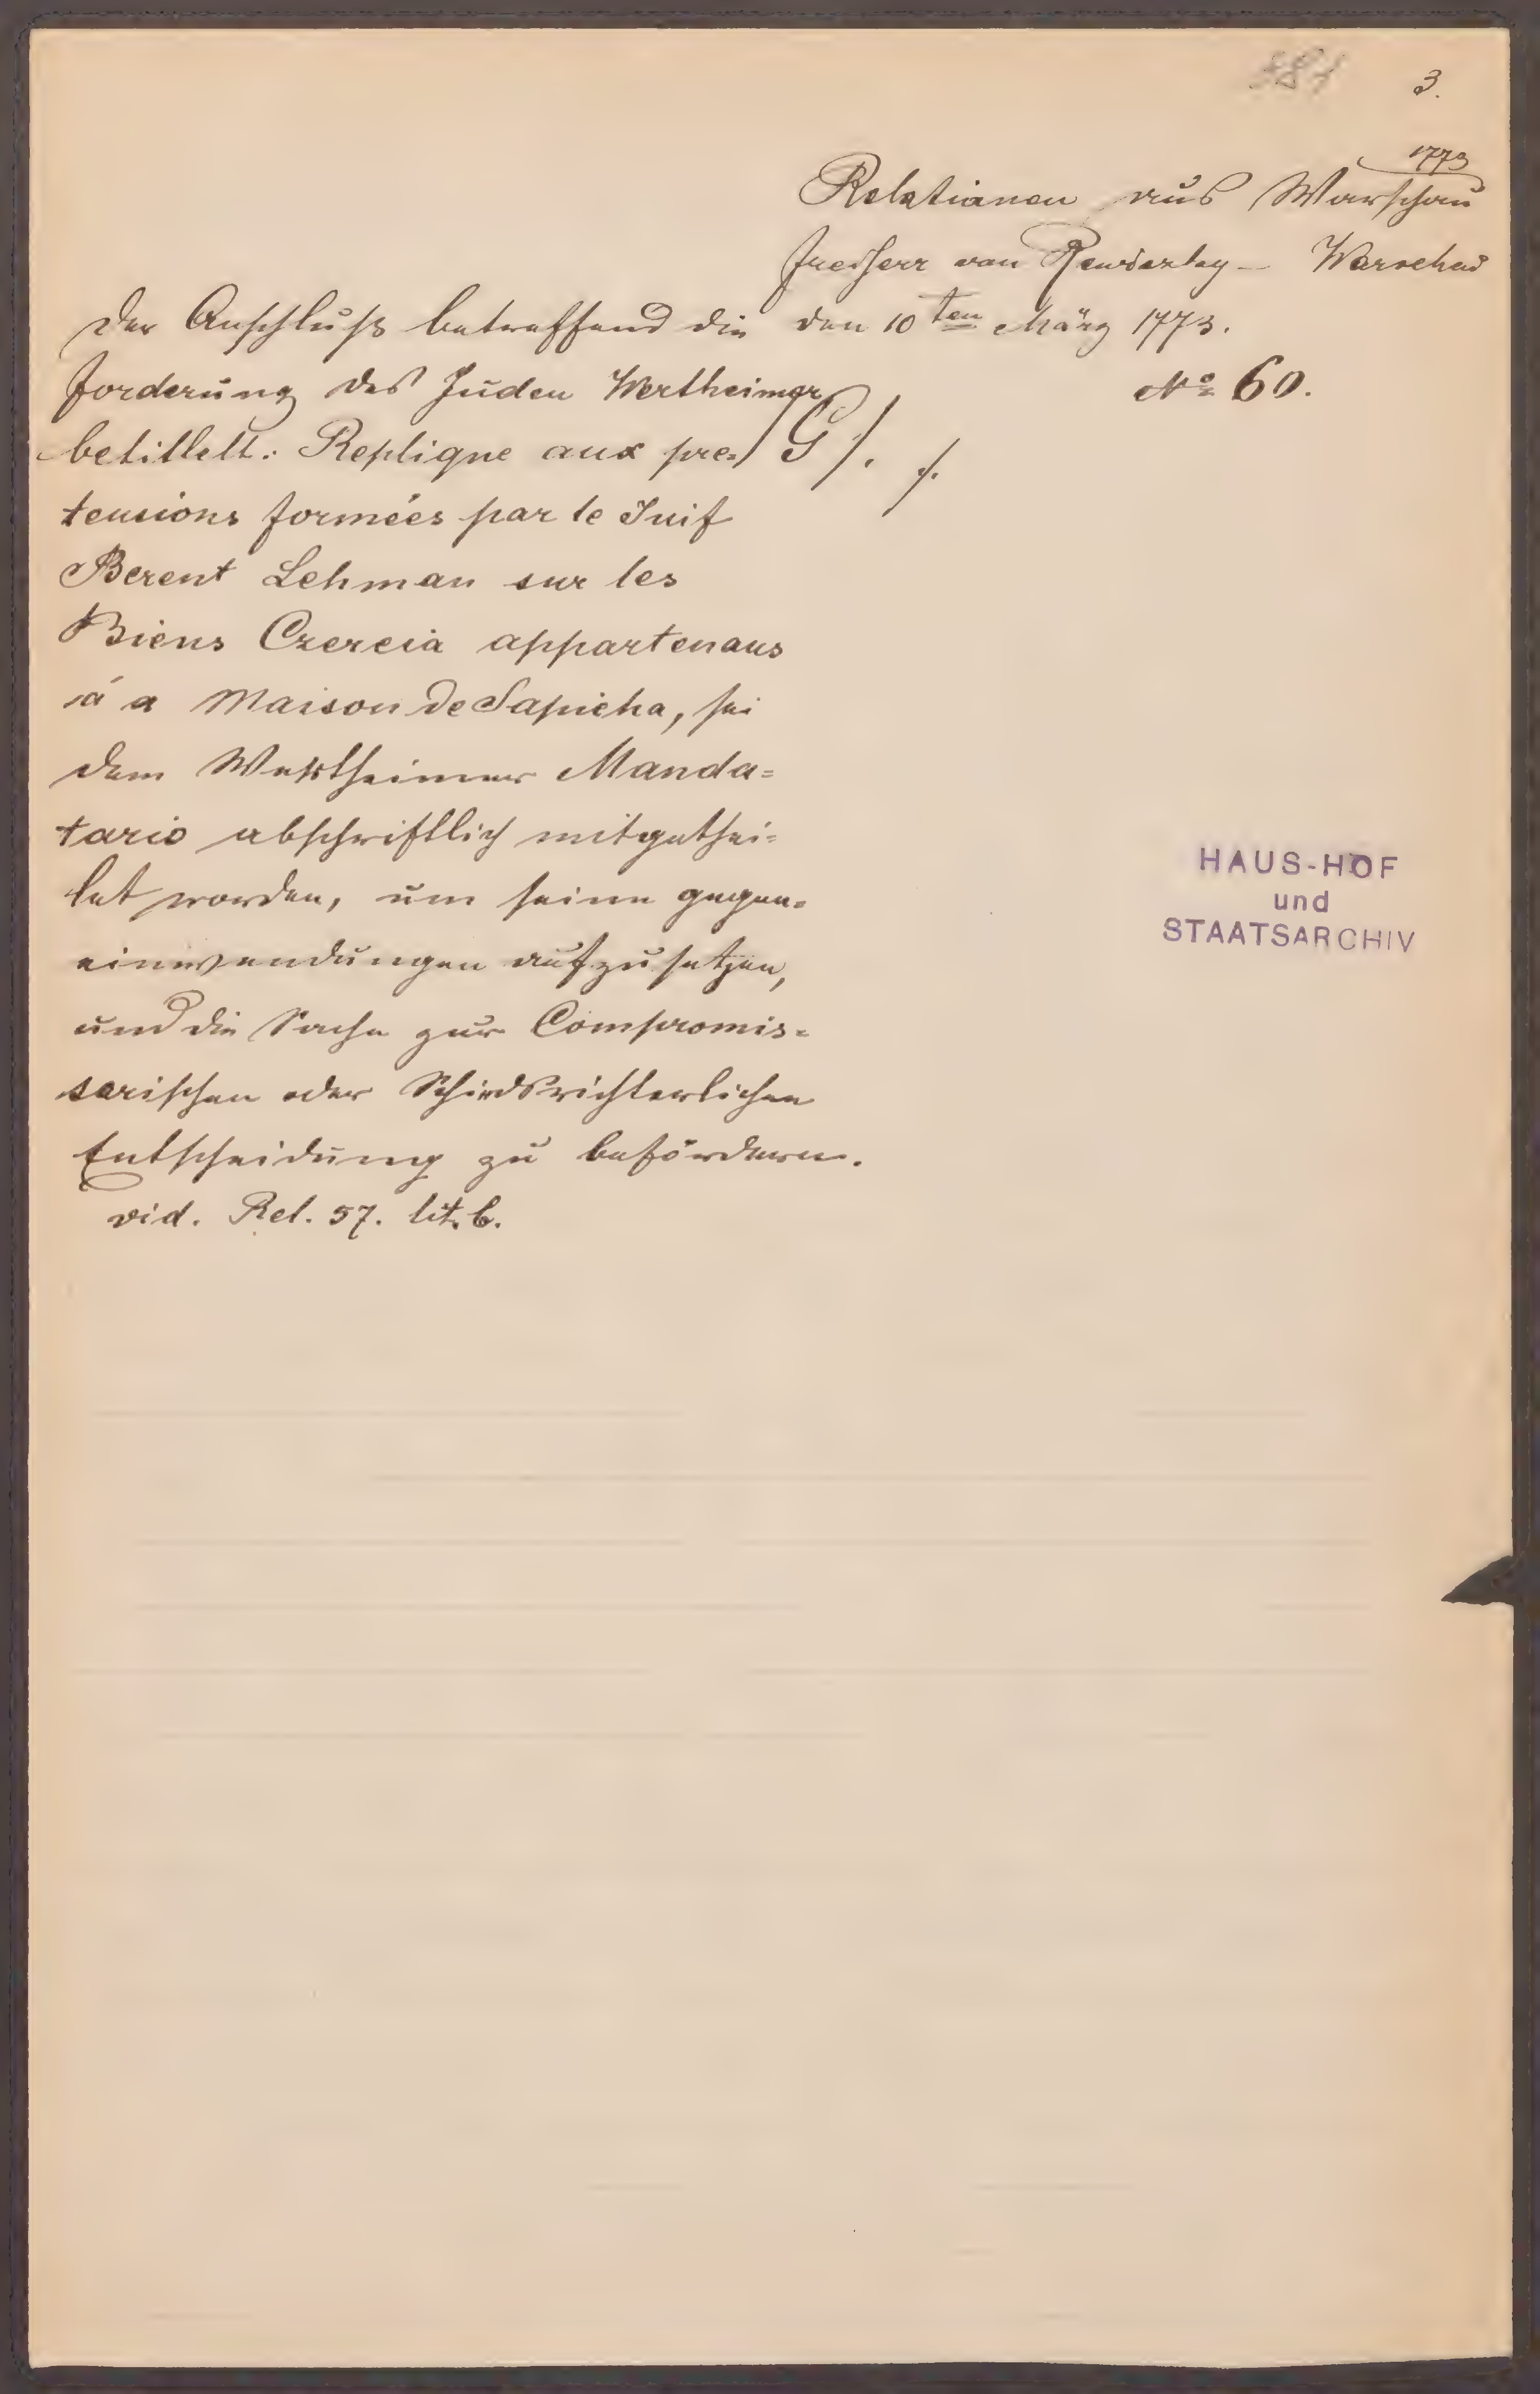 381 3.
1773
Relationen aus Warschau
Freiherr von Rewiczky – Warschau
den 10ten März 1773.
No 60.
G/. ./.
Der Anschluß betreffend die
forderung des Juden Wertheimer
betittelt: Replique aux pre=
tensions formées par le Juif
Berent Lehman sur les
Biens Czercia appartenans
á a Maison de Sapieha, sei
dem Wertheimer Manda=
tario abschriftlich mitgethei=
let worden, um seine gegen=
einwendungen aufzusetzen,
und die Sache zur Compromis=
sarischen oder Schiedsrichterlichen
Entscheidung zu befördern.
vid. Rel. 57. lit. b.
HAUS-HOF
und
STAATSARCHIV